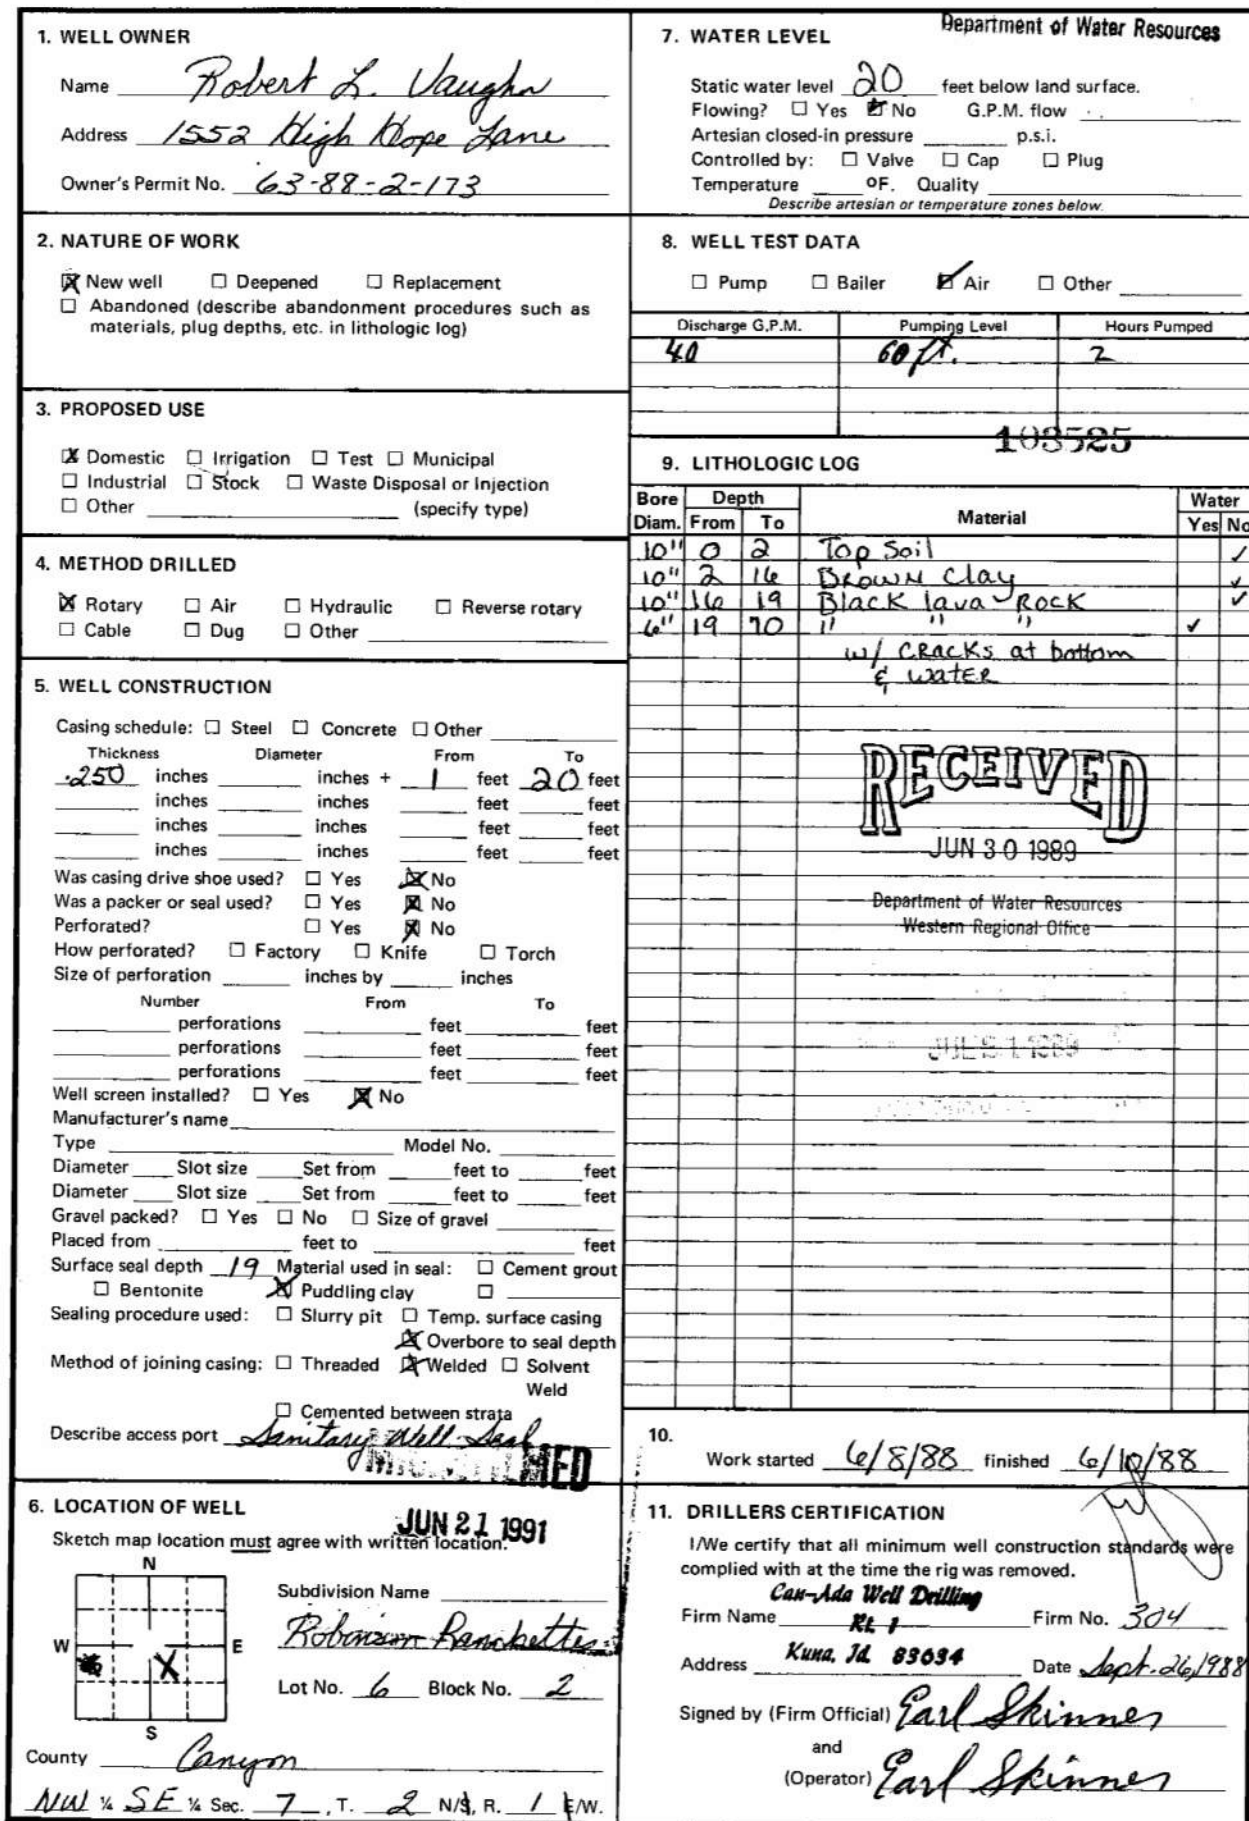 Department of Water Resources
1. WELL OWNER
Name Robert L. Vaughn
Address 1552 High Hope Lane
Owner's Permit No. 63-88-2-173
2. NATURE OF WORK
☒ New well ☐ Deepened ☐ Replacement
☐ Abandoned (describe abandonment procedures such as
materials, plug depths, etc. in lithologic log)
3. PROPOSED USE
☒ Domestic ☐ Irrigation ☐ Test ☐ Municipal
☐ Industrial ☐ Stock ☐ Waste Disposal or Injection
☐ Other (specify type)
4. METHOD DRILLED
☒ Rotary ☐ Air ☐ Hydraulic ☐ Reverse rotary
☐ Cable ☐ Dug ☐ Other
5. WELL CONSTRUCTION
Casing schedule: ☐ Steel ☐ Concrete ☐ Other
Thickness Diameter From To
.250 inches inches + 1 feet 20 feet
inches inches feet feet
inches inches feet feet
inches inches feet feet
Was casing drive shoe used? ☐ Yes ☒ No
Was a packer or seal used? ☐ Yes ☒ No
Perforated? ☐ Yes ☒ No
How perforated? ☐ Factory ☐ Knife ☐ Torch
Size of perforation inches by inches
Number From To
perforations feet feet
perforations feet feet
perforations feet feet
Well screen installed? ☐ Yes ☒ No
Manufacturer's name
Type Model No.
Diameter Slot size Set from feet to feet
Diameter Slot size Set from feet to feet
Gravel packed? ☐ Yes ☐ No ☐ Size of gravel
Placed from feet to feet
Surface seal depth 19 Material used in seal: ☐ Cement grout
☐ Bentonite ☒ Puddling clay ☐
Sealing procedure used: ☐ Slurry pit ☐ Temp. surface casing
☒ Overbore to seal depth
Method of joining casing: ☐ Threaded ☒ Welded ☐ Solvent
Weld
☐ Cemented between strata
Describe access port Sanitary Well Seal
6. LOCATION OF WELL
JUN 21 1991
Sketch map location must agree with written location.
N
W E
X
S
Subdivision Name
Robinson Ranchettes
Lot No. 6 Block No. 2
County Canyon
NW ¼ SE ¼ Sec. 7, T. 2 N/S, R. 1 E/W.
7. WATER LEVEL
Static water level 20 feet below land surface.
Flowing? ☐ Yes ☒ No G.P.M. flow
Artesian closed-in pressure p.s.i.
Controlled by: ☐ Valve ☐ Cap ☐ Plug
Temperature OF. Quality
Describe artesian or temperature zones below.
8. WELL TEST DATA
☐ Pump ☐ Bailer ☒ Air ☐ Other
Discharge G.P.M. Pumping Level Hours Pumped
40 60 ft. 2
103525
9. LITHOLOGIC LOG
Bore Depth Water
Diam. From To Material Yes No
10" 0 2 Top Soil ✓
10" 2 16 Brown Clay ✓
10" 16 19 Black lava Rock ✓
6" 19 70 " " " ✓
w/ CRACKS at bottom
& WATER
RECEIVED
JUN 30 1989
Department of Water Resources
Western Regional Office
10.
Work started 6/8/88 finished 6/10/88
11. DRILLERS CERTIFICATION
I/We certify that all minimum well construction standards were
complied with at the time the rig was removed.
Can-Ada Well Drilling
Firm Name Rt. 1 Firm No. 304
Address Kuna, Id. 83634 Date Sept. 26, 1988
Signed by (Firm Official) Earl Skinner
and
(Operator) Earl Skinner